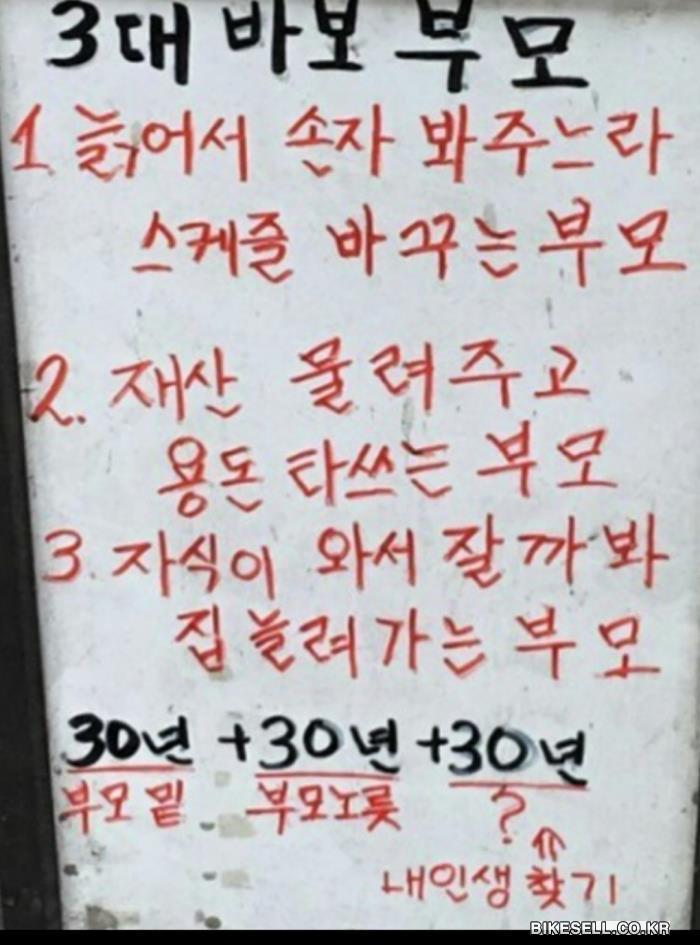 3대 바보 부모
1 늙어서 손자 봐주느라
스케즐 바꾸는 부모
2. 재산 물려주고
용돈 타쓰는 부모
3. 자식이 와서 잘까봐
집 늘려가는 부모
30년 +30년 +30년
부모밑 부모노릇 ?
⇑
내인생 찾기
BIKESELL.CO.KR